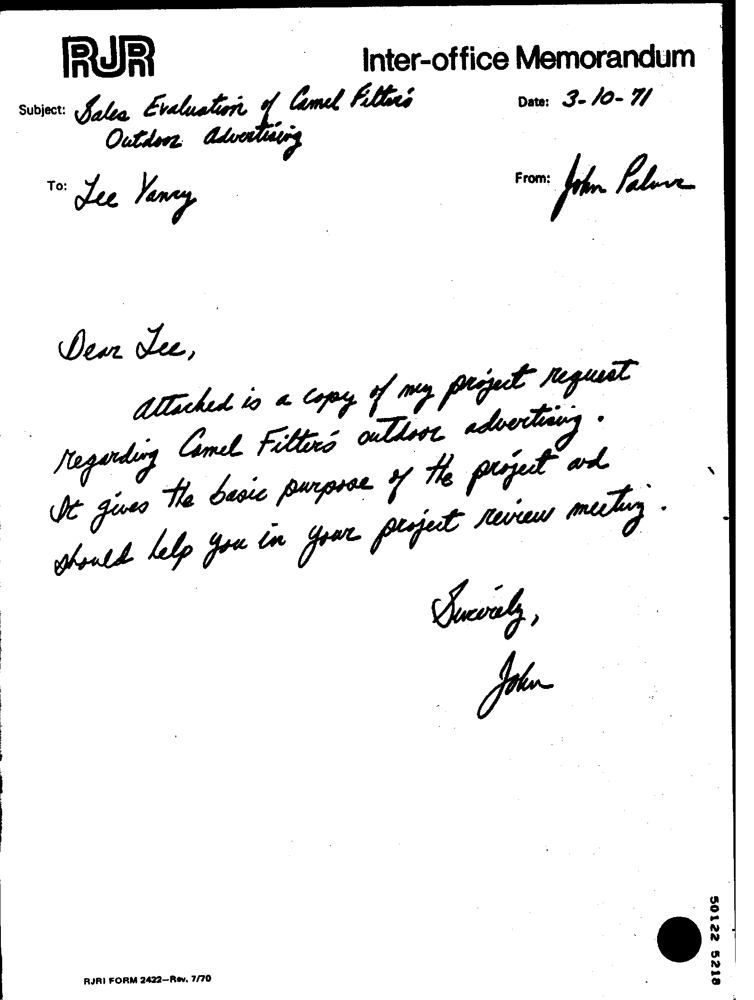 RJR
Inter-office Memorandum
Subject: Sales Evaluation of Camel Filter's
Outdoor Advertising
Date: 3-10-71
To: Lee Yancy
From: John Palmer
Dear Lee,
Attached is a copy of my project request
regarding Camel Filter's outdoor advertising.
It gives the basic purpose of the project and
should help you in your project review meeting.
Sincerely,
John
RJRI FORM 2422—Rev. 7/70
50122 5218